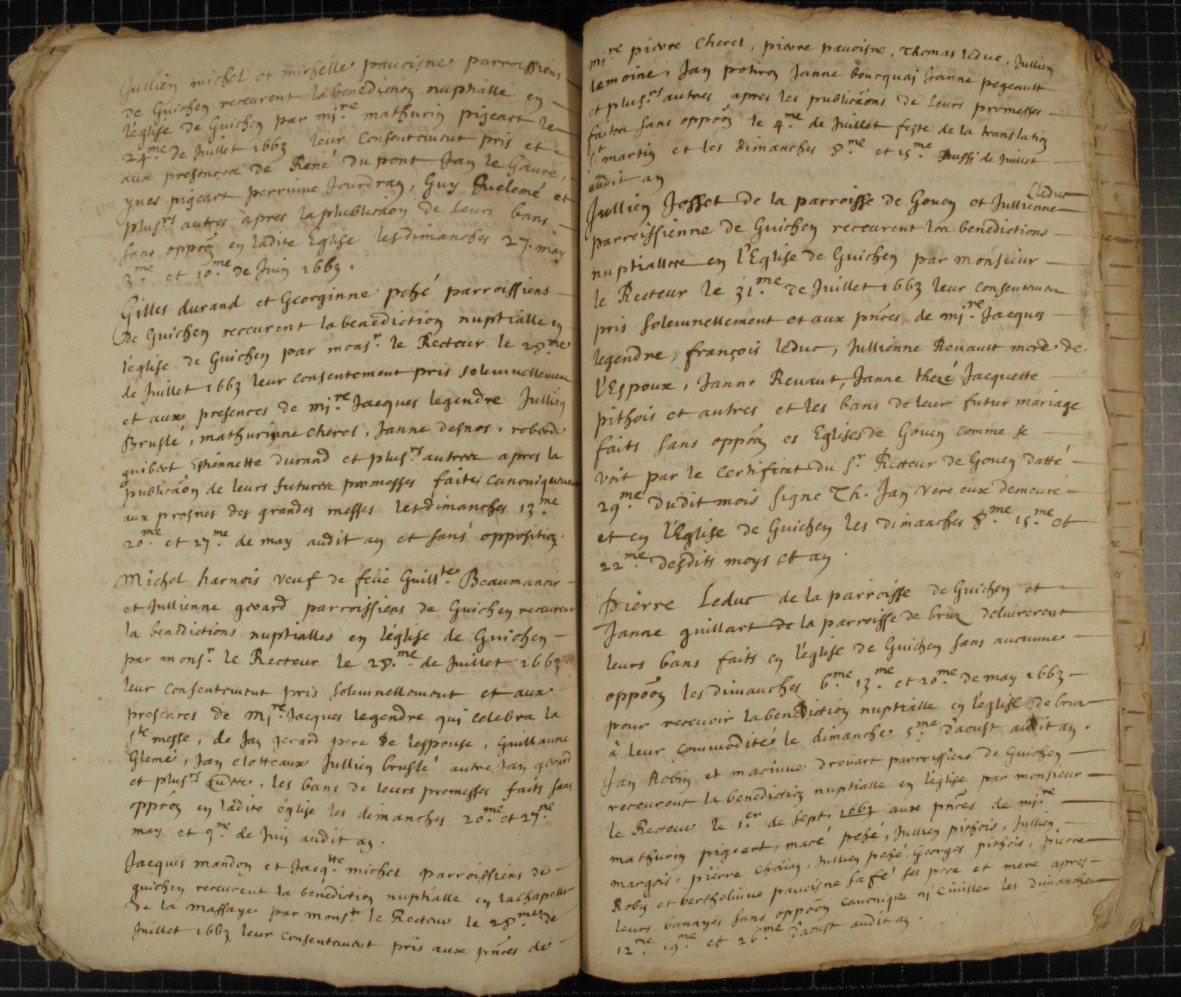 Jullien michel et michelle pavoisne parroissiens
de Guichen receurent la benediction nuptialle en
l'église de Guichen par mi.re mathurin pigeart le
24.me de Juillet 1663 leur Consentement pris et
aux presences de René Dupont Jan le
yves pigeart perrinne Jourdran, Guy et
plus.rs autres apres la plublicãon de leurs bans
sans oppõon en ladite Eglise les dimanches 27. may
3.me et 10.me de Juin 1663.
Gilles durand et Georginne pehé parroissiens
de Guichen receurent la benediction nuptialle en
l'église de Guichen par mons.r le Recteur le 28.me
de Juillet 1663 leur consentement pris solemnellement
et aux presences de mi.re Jacques legendre Jullien
Bruslé, mathurinne Cherel, Janne desnos, roberde
guibert Esthennette durand et plus.rs autres apres la
publicãon de leurs futures promesses faites Canoniquement
aux prosnes des grandes messes les dimanches 13.me
20.me et 27.me de may audit an et sans opposition.
Michel harnois veuf de feüe Guill.te Beaumanoir
et Jullienne gerard parroissiens de Guichen receurent
la benedictions nuptialles en l'église de Guichen
par mons.r le Recteur le 28.me de Juillet 1663
leur Consentement pris solemnellement et aux
presences de Mi.re Jacques legendre qui celebra la
s.te messe, de Jan gerard pere de lespouse, Guillaume
Glemé, Jan clotteaux Jullien bruslé autre Jan gerard
et plus.rs autres, les bans de leurs promesses faits sans
oppõon en ladite église les dimanches 20.me et 27.me
may et 3.me de Juin audit an.
Jacques mandon et Jacq.tte michel parroissiens de
guichen receurent la benediction nuptialle en la chapelle
de la massaye par mons.r le Recteur le 28.me de
Juillet 1663 leur Consentement pris aux pñces de
mi.re pierre Cherel, pierre pavoisne, Thomas leduc, Jullien
lemoine, Jan potiron Janne bourquaj Jeanne pegeault
et plus.rs autres apres les publicãons de leurs promesses
faites sans oppõon le 4.me de Juillet feste de la translaõn
s.t martin et les dimanches 8.me et 15.me aussi de Juillet
audit an
Jullien Josset de la parroisse de Goven et Jullienne Leduc
parroissienne de Guichen receurent les benedictions
nuptialles en l'Eglise de Guichen par monsieur
le Recteur le 31.me de Juillet 1663 leur Consentement
pris solemnellement et aux pñces de mi.re Jacques
legendre, françois leduc, Jullienne Renault mere de
l'Espoux, Janne Renaut, Janne thezé Jacquette
pithois et autres et les bans de leur futur mariage
faits sans oppõon es Eglises de Goven comme se
voit par le certificat du s.r Recteur de Goven datté
29.me dudit mois signe Th. Jan vers eux demeuré
et en l'Eglise de Guichen les dimanches 8.me 15.me et
22.me desdits moys et an.
Pierre Leduc de la parroisse de Guichen et
Janne guillart de la parroisse de bruz deluirerent
leurs bans faits en l'église de Guichen sans aucunne
oppõon les dimanches 6.me 13.me et 20.me de may 1663
pour recevoir la benediction nuptialle en l'église de bruz
à leur commodité le dimanche 5.me d'aoust audit an.
Jan Robin et macinne drouart parroissiens de Guichen
receurent la benediction nuptialle en l'église par monsieur
le Recteur le 1.er de sept. 1663 aux pñces de mi.re
mathurin pigeart, macé pehé, Jullien pithois, Jullien
margois, pierre, Jullien pehé, Georges pithois, pierre
Robin et berthelinne pavoisne sa fé ses pere et mere apres
leurs bannyes sans oppõon Canonique nj Civille les dimanches
12.me 19.me et 26.me d'aoust audit an.